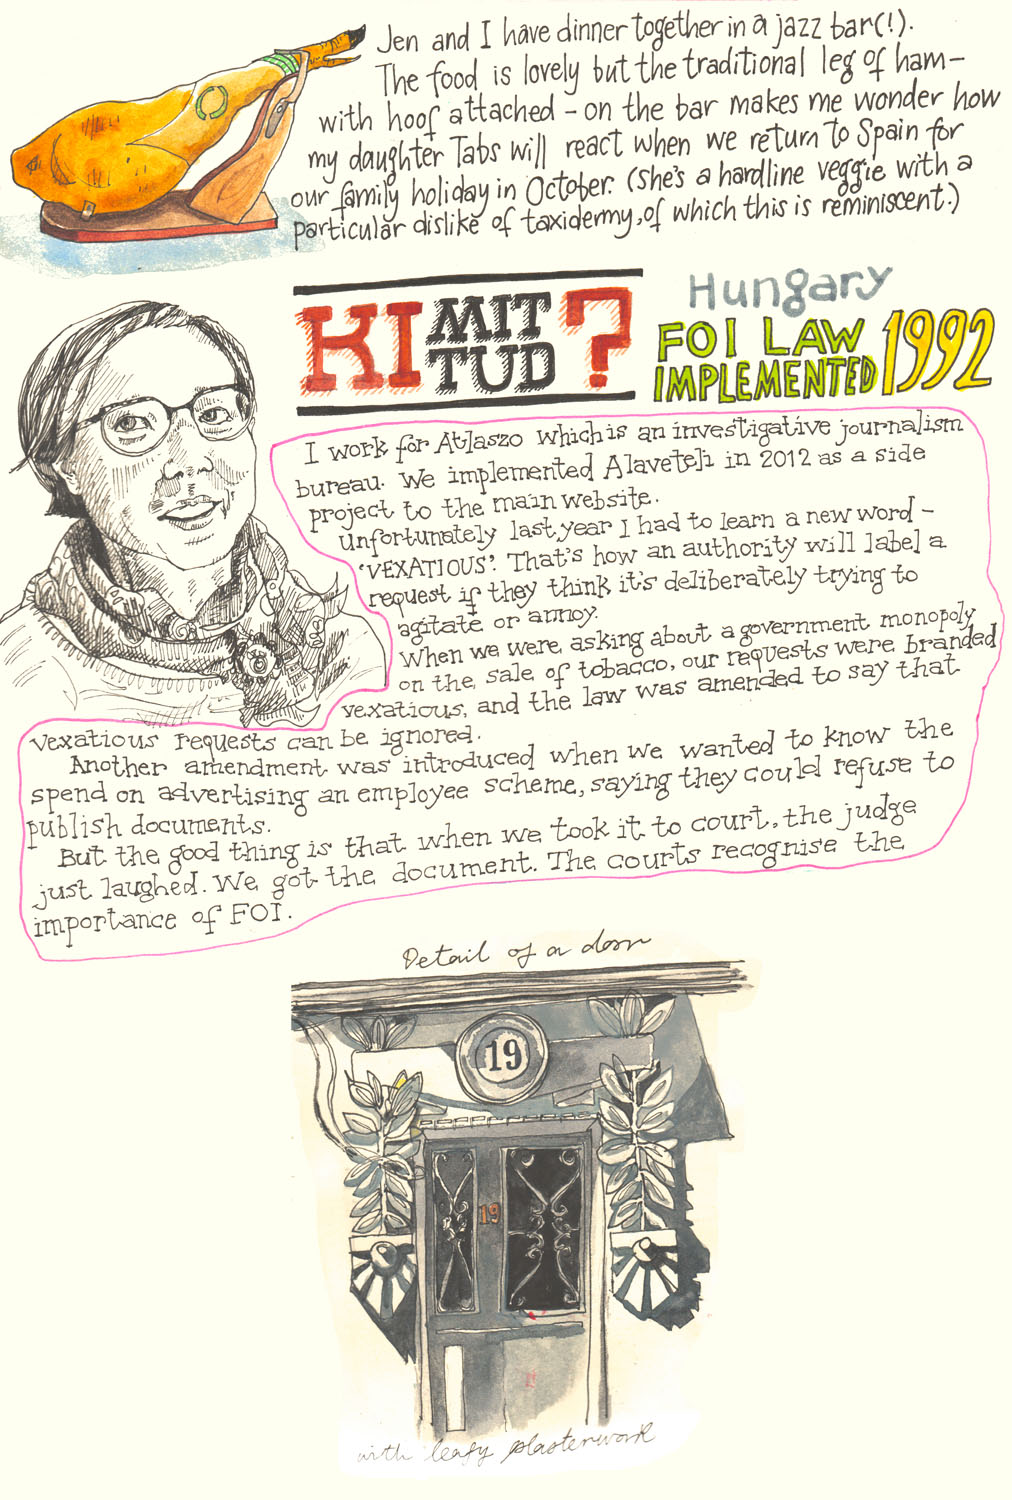 Jen and I have dinner together in a jazz bar(!).
The food is lovely but the traditional leg of ham-
with hoof attached - on the bar makes me wonder how
my daughter Tabs will react when we return to Spain for
our family holiday in October. (She's a hardline veggie with a
particular dislike of taxidermy, of which this is reminiscent.)
KI MIT TUD ?
Hungary
FOI LAW
IMPLEMENTED 1992
I work for Atlaszo which is an investigative journalism
bureau. We implemented Alaveteli in 2012 as a side
project to the main website.
Unfortunately last year I had to learn a new word -
'VEXATIOUS'. That's how an authority will label a
request if they think it's deliberately trying to
agitate or annoy.
When we were asking about a government monopoly
on the sale of tobacco, our requests were branded
vexatious, and the law was amended to say that
vexatious requests can be ignored.
Another amendment was introduced when we wanted to know the
spend on advertising an employee scheme, saying they could refuse to
publish documents.
But the good thing is that when we took it to court, the judge
just laughed. We got the document. The courts recognise the
importance of FOI.
Detail of a door
19
19
with leafy plasterwork